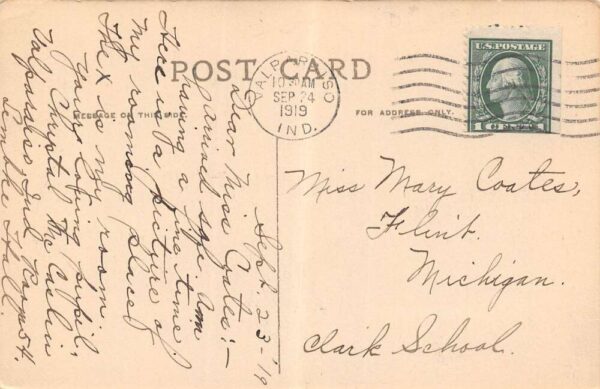 POST CARD
MESSAGE ON THIS
FOR ADDRESS ONLY.
VALPARAISO
AM
SEP 24
1919
IND.
U.S. POSTAGE
1 CENT
Sept. 23-'19
Dear Miss Coates:-
Arrived safe. Am
having a fine time
Here is a picture of
my rooming place
The x is my room.
Your Loving pupil,
Valparaiso, Ind
Lembke Hall.
Miss Mary Coates,
Flint.
Michigan.
Clark School.